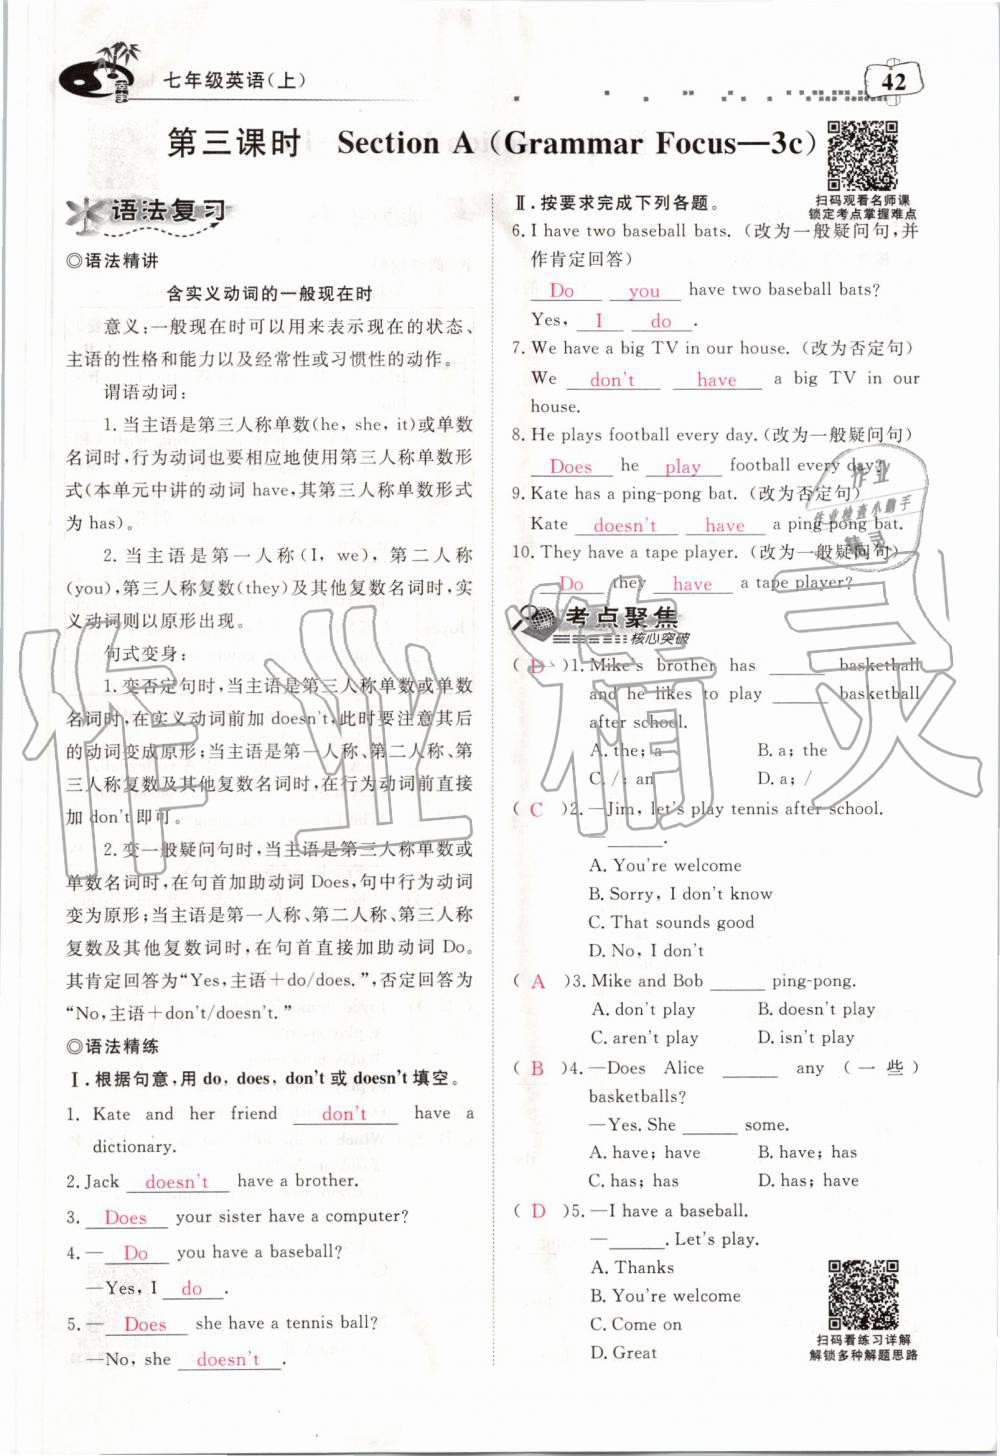 七年级英语(上)
42
第三课时 Section A (Grammar Focus—3c)
扫码观看名师课
锁定考点掌握难点
语法复习
◎语法精讲
含实义动词的一般现在时
意义:一般现在时可以用来表示现在的状态、
主语的性格和能力以及经常性或习惯性的动作。
谓语动词:
1. 当主语是第三人称单数(he, she, it)或单数
名词时,行为动词也要相应地使用第三人称单数形
式(本单元中讲的动词 have,其第三人称单数形式
为 has)。
2. 当主语是第一人称(I, we),第二人称
(you),第三人称复数(they)及其他复数名词时,实
义动词则以原形出现。
句式变身:
1. 变否定句时,当主语是第三人称单数或单数
名词时,在实义动词前加 doesn't,此时要注意其后
的动词变成原形;当主语是第一人称、第二人称、第
三人称复数及其他复数名词时,在动词前直接
加 don't 即可。
2. 变一般疑问句时,当主语是第三人称单数或
单数名词时,在句首加助动词 Does,句中行为动词
变为原形;当主语是第一人称、第二人称、第三人称
复数及其他复数词时,在句首直接加助动词 Do。
其肯定回答为“Yes,主语+do/does.”,否定回答为
“No,主语+don't/doesn't.”
◎语法精练
Ⅰ. 根据句意,用 do, does, don't 或 doesn't 填空。
1. Kate and her friend don't have a
dictionary.
2. Jack doesn't have a brother.
3. Does your sister have a computer?
4. — Do you have a baseball?
—Yes, I do .
5. — Does she have a tennis ball?
—No, she doesn't .
Ⅱ. 按要求完成下列各题。
6. I have two baseball bats. (改为一般疑问句,并
作肯定回答)
Do you have two baseball bats?
Yes, I do .
7. We have a big TV in our house. (改为否定句)
We don't have a big TV in our
house.
8. He plays football every day. (改为一般疑问句)
Does he play football every day?
9. Kate has a ping-pong bat. (改为否定句)
Kate doesn't have a ping-pong bat.
10. They have a tape player. (改为一般疑问句)
Do they have a tape player?
考点聚焦
核心突破
( D )1. Mike's brother has ______ basketball
and he likes to play ______ basketball
after school.
A. the; a B. a; the
C. /; an D. a; /
( C )2. —Jim, let's play tennis after school.
—______.
A. You're welcome
B. Sorry, I don't know
C. That sounds good
D. No, I don't
( A )3. Mike and Bob ______ ping-pong.
A. don't play B. doesn't play
C. aren't play D. isn't play
( B )4. —Does Alice ______ any (一些)
basketballs?
—Yes. She ______ some.
A. have; have B. have; has
C. has; has D. has; have
( D )5. —I have a baseball.
—______. Let's play.
A. Thanks
B. You're welcome
C. Come on
D. Great
扫码看练习详解
解锁多种解题思路
作业
作业检查小助手
精灵
作业精灵